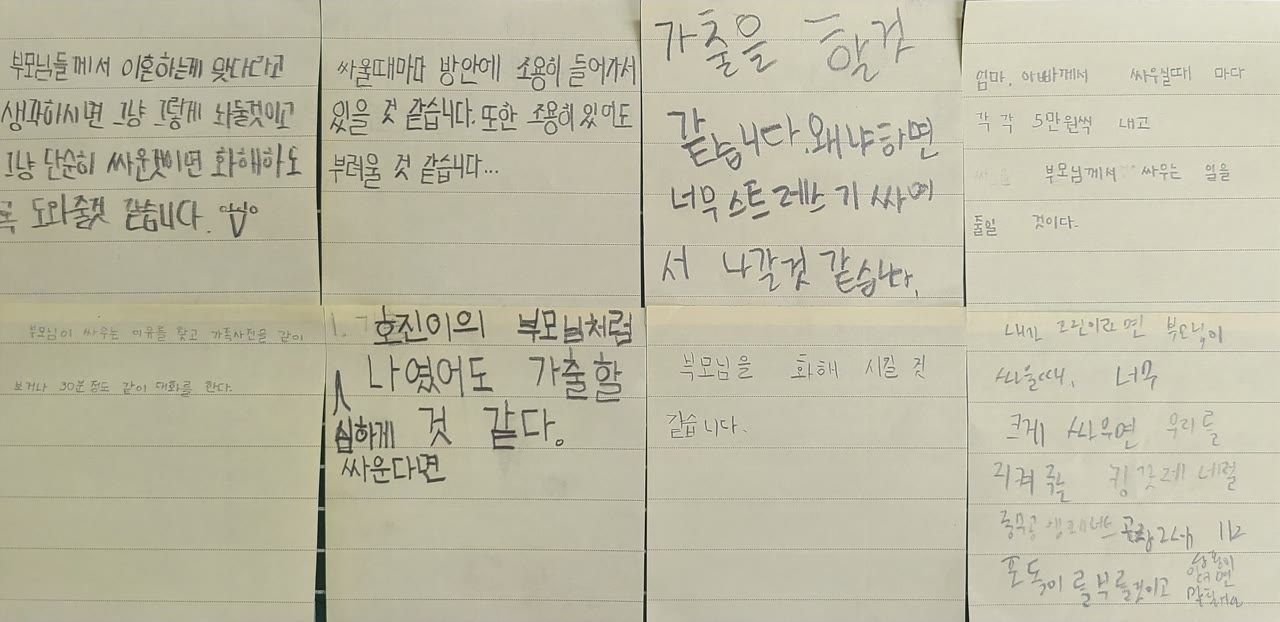 부모님들께서 이혼하는게 맞다라고
생각하시면 그냥 그렇게 놔둘것이고
그냥 단순히 싸운것이면 화해하도
록 도와줄것 같습니다.
싸울때마다 방안에 조용히 들어가서
있을 것 같습니다. 또한 조용히 있어도
부러울 것 같습니다...
가출을 할것
같습니다. 왜냐하면
너무 스트레스 기 싸여
서 나갈것 같습니다.
엄마, 아빠께서 싸우실때 마다
각 각 5만원씩 내고
부모님께서 싸우는 일을
줄일 것이다.
부모님이 싸우는 이유를 찾고 가족사진을 같이
보거나 30분 정도 같이 대화를 한다.
1. 호진이의 부모님처럼
나였어도 가출할
심하게 것 같다.
싸운다면
부모님을 화해 시킬 것
같습니다.
내가 부모님이
싸울때, 너무
크게 싸우면 우리를
지켜줄
112
를 부를것이고